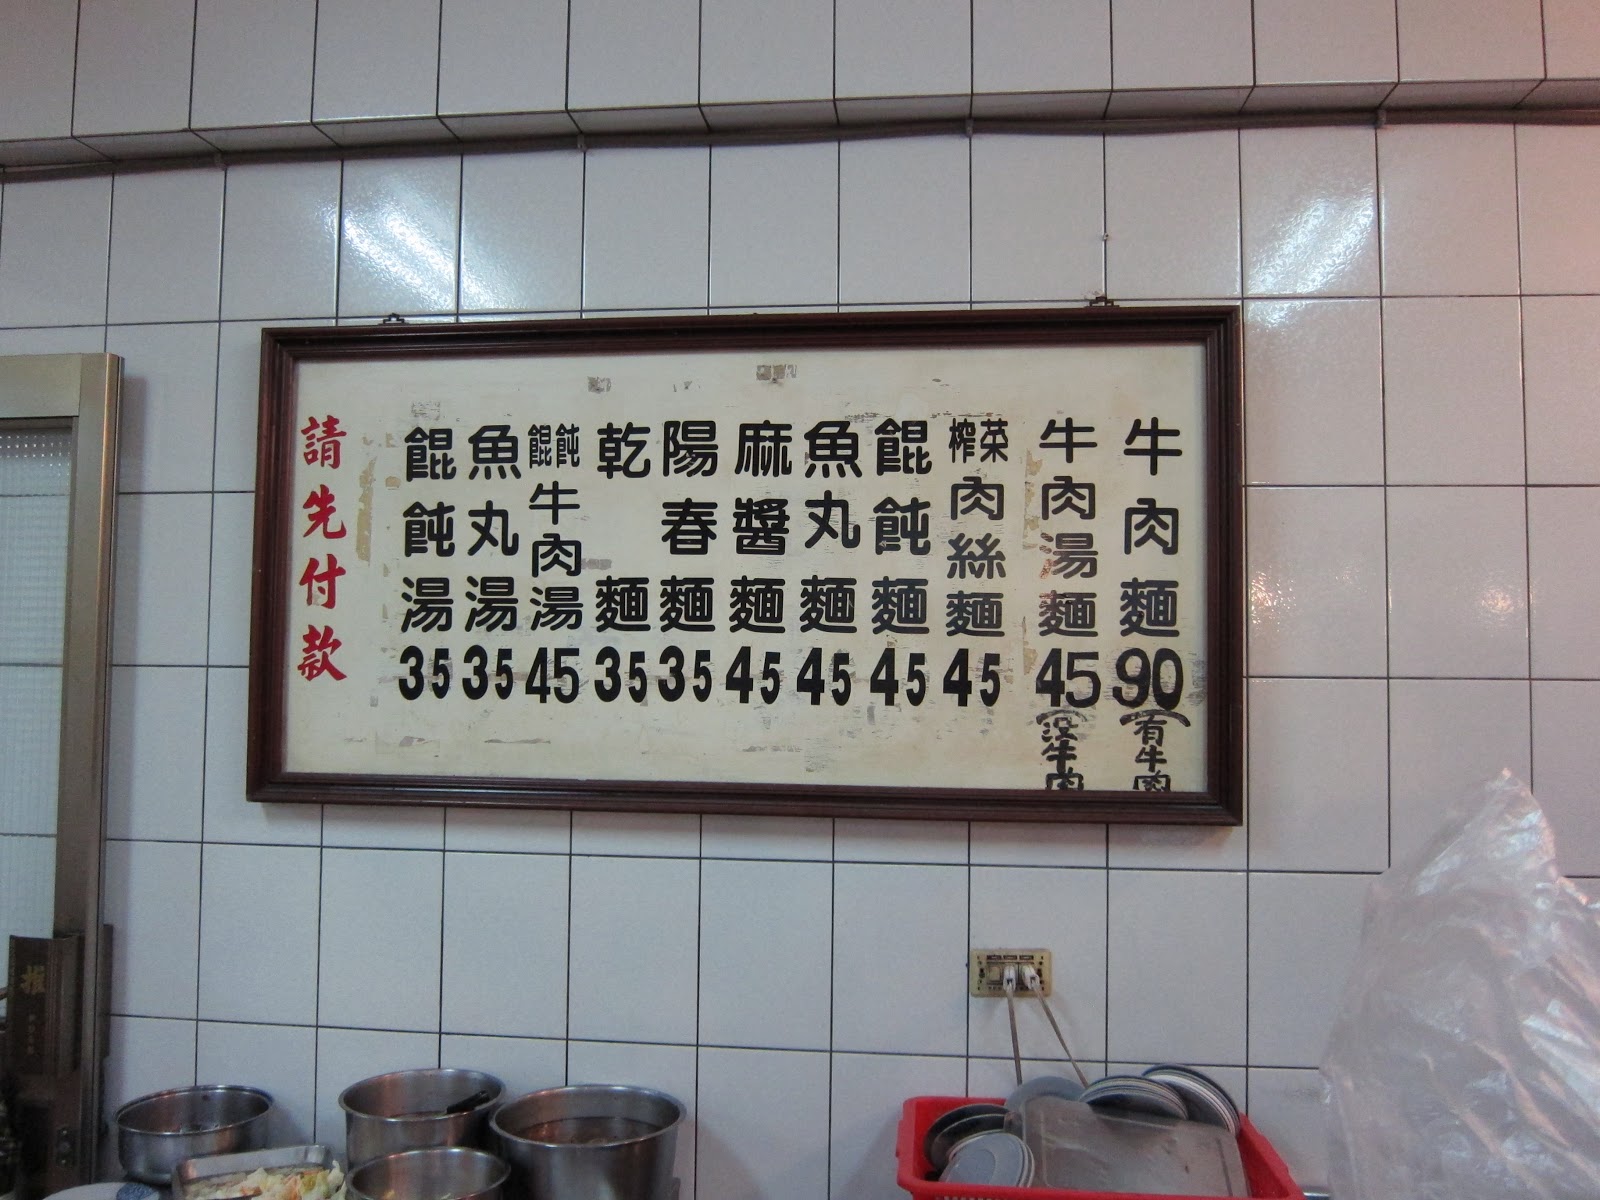 牛肉麵90
(有牛肉
牛肉湯麵45
(沒牛肉
榨菜肉絲麵45
餛飩麵45
魚丸麵45
麻醬麵45
陽春麵35
乾麵35
餛飩牛肉湯45
魚丸湯35
餛飩湯35
請先付款
推